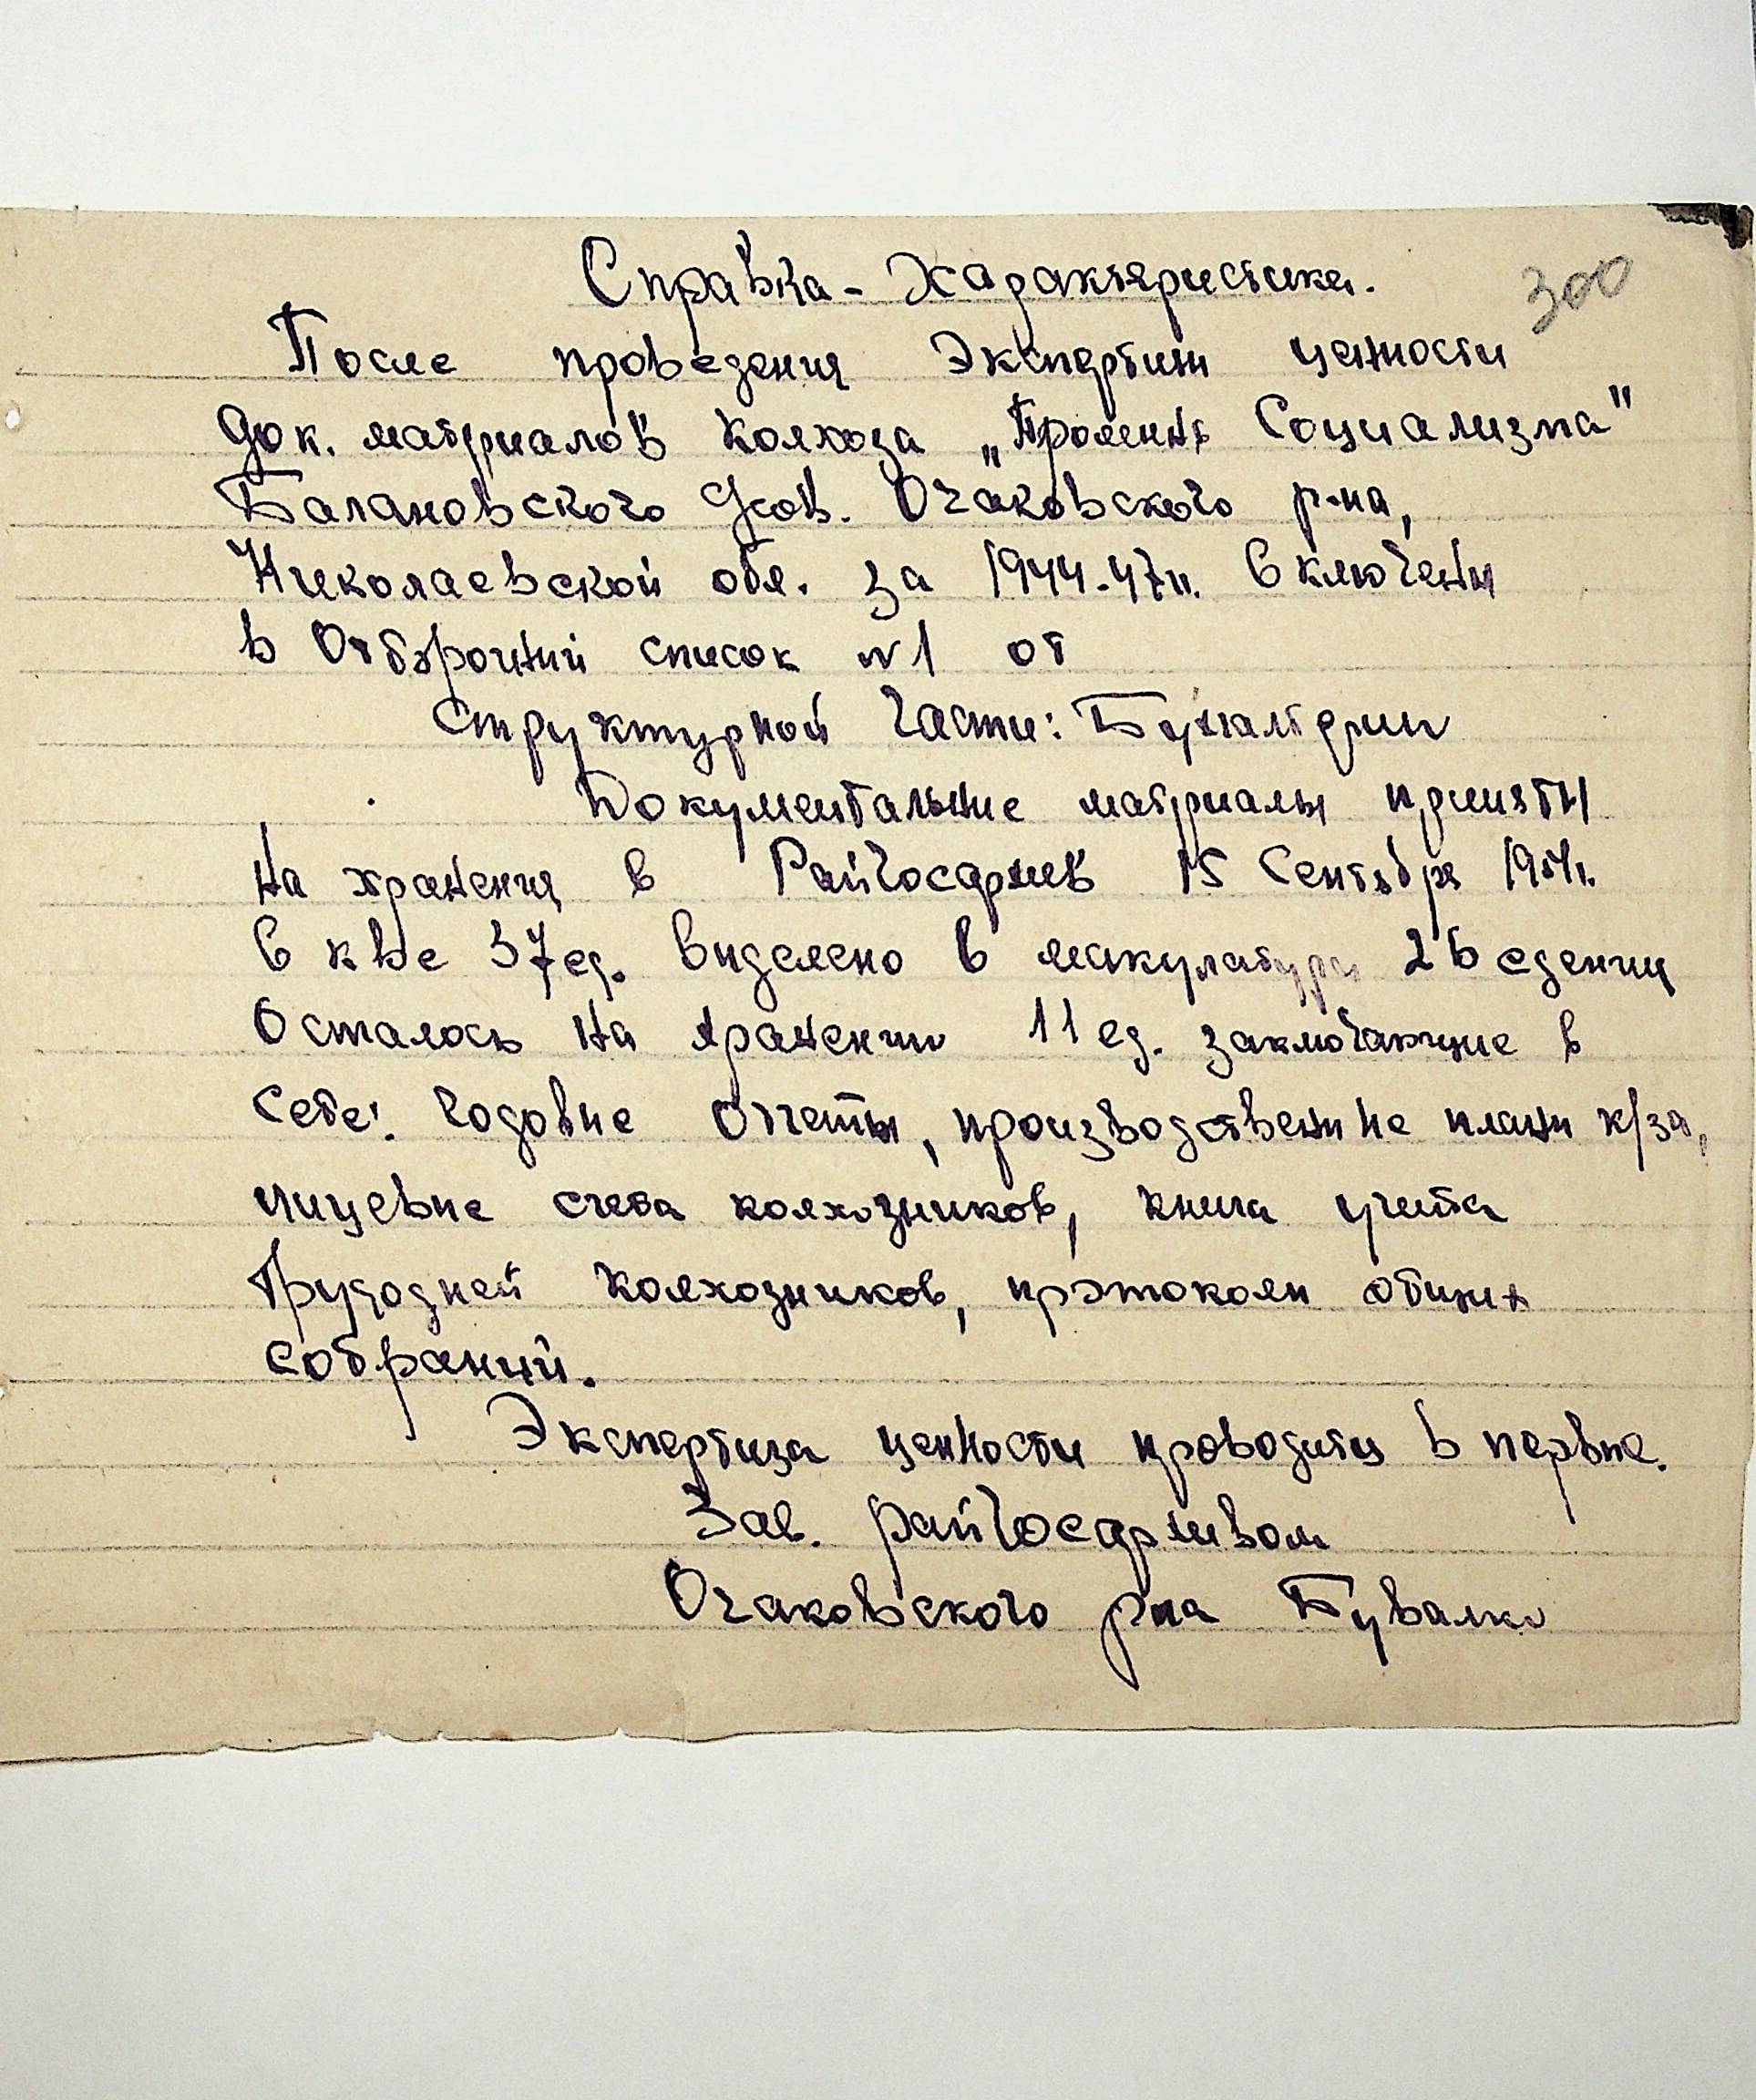 Справка - Характеристика.
300
После проведения Экспертизи ценности
док. материалов колхоза „Променя Социализма"
Балановского Сов. Очаковского р-на,
Николаевской обл. за 1944-47гг. Включени
в Отборочний список №1 от
структурной части: Бухгалтерии
Документальние материалы приняти
на хранения в Райгосархив 15 Сентября 195 г.
В к-ве 37 ед. виделено в макулатуру 26 едениц
Осталось на хранении 11 ед. заключающие в
себе: годовие отчеты, производственние плани к/за,
лицевие счета колхозников, книга учета
Трудодней колхозников, протоколи общих
собраний.
Экспертиза ценности проводится в первие.
Зав. райгосархивом
Очаковского р-на Бувалко